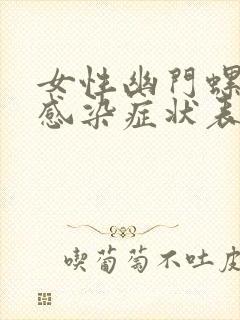 女性幽門螺
感染症狀表
喫葡萄不吐皮